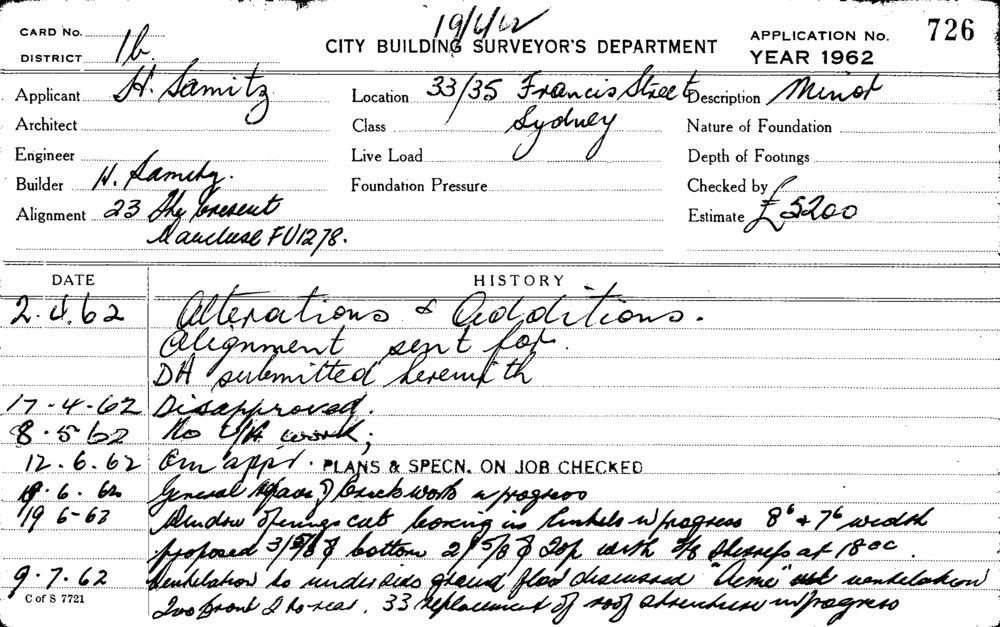 19/6/62
CARD No.
DISTRICT 1b
CITY BUILDING SURVEYOR'S DEPARTMENT
APPLICATION No. 726
YEAR 1962
Applicant H. Samitz
Location 33/35 Francis Street
Sydney
Description Minor
Architect
Class
Nature of Foundation
Engineer
Live Load
Depth of Footings
Builder H. Samitz.
Foundation Pressure
Checked by
Alignment 23 The Crescent
Vaucluse FU1278.
Estimate £5200
DATE HISTORY
2.4.62 Alterations & Additions.
Alignment sent for.
DA submitted herewith
17-4-62 Disapproved.
8.5.62 No work;
12.6.62 Cm app'd. PLANS & SPECN. ON JOB CHECKED
.6.62 General repairs & brickwork in progress
19 6-62 Window openings cut boxing in lintels in progress 8⁶ & 7⁶ width
proposed 3/5/8 ϕ bottom 2/5/8 ϕ top with 3/8 stirrups at 18 oc.
9.7.62 Ventilation to underside ground floor discussed "Acme" ventilation
Two front 2 to rear. 33 replacement of roof structure in progress
C of S 7721